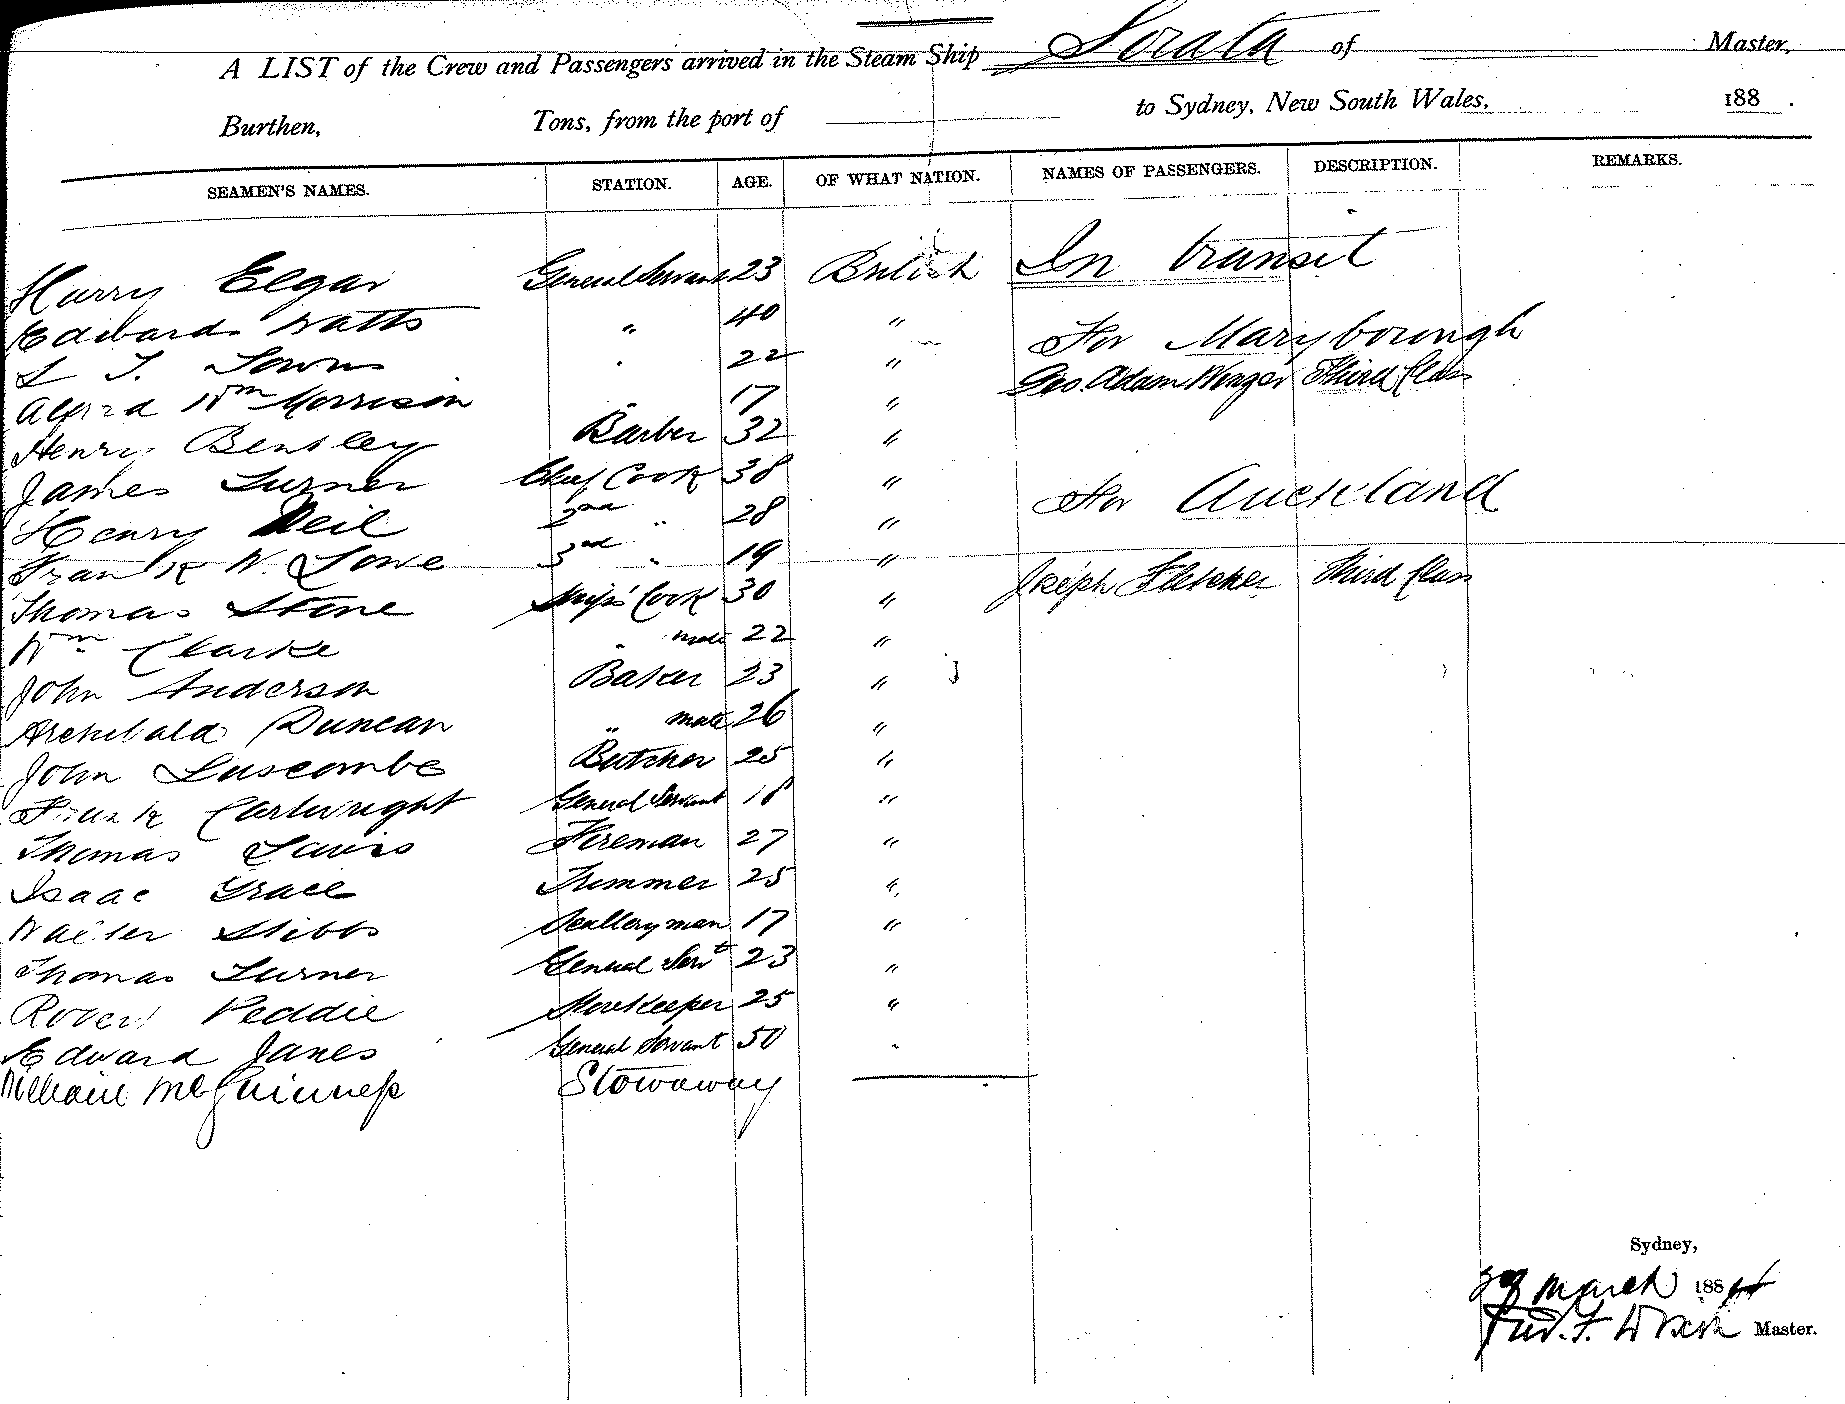 A LIST of the Crew and Passengers arrived in the Steam Ship Sorata of Master,
Burthen, Tons, from the port of to Sydney, New South Wales, 188 .
SEAMEN'S NAMES. STATION. AGE. OF WHAT NATION. NAMES OF PASSENGERS. DESCRIPTION. REMARKS.
Harry Elgar General Servant 23 British In transit
Edward Watts " 40 " For Maryborough
22 " Geo. Adam Third Class
Alfred Wm Morrison " 17 "
Henry Bensley Barber 32 "
James Turner Chief Cook 38 " For Auckland
Henry Neil 2nd " 28 "
Frank W. Lowe 3rd " 19 " Joseph Fletcher Third Class
Thomas Stone Ships' Cook 30 "
Wm Clarke " mate 22 "
John Anderson Baker 23 "
Archibald Duncan " mate 26 "
John Luscombe Butcher 25 "
Frank Cartwright General Servant 18 "
Thomas Fireman 27 "
Isaac Grace Trimmer 25 "
Walter Stibbs Scullery man 17 "
Thomas Turner General Servt 23 "
Robert Peddie Storekeeper 25 "
Edward Janes General Servant 50 "
William McGuinness Stowaway
Sydney,
March 1884
Master.